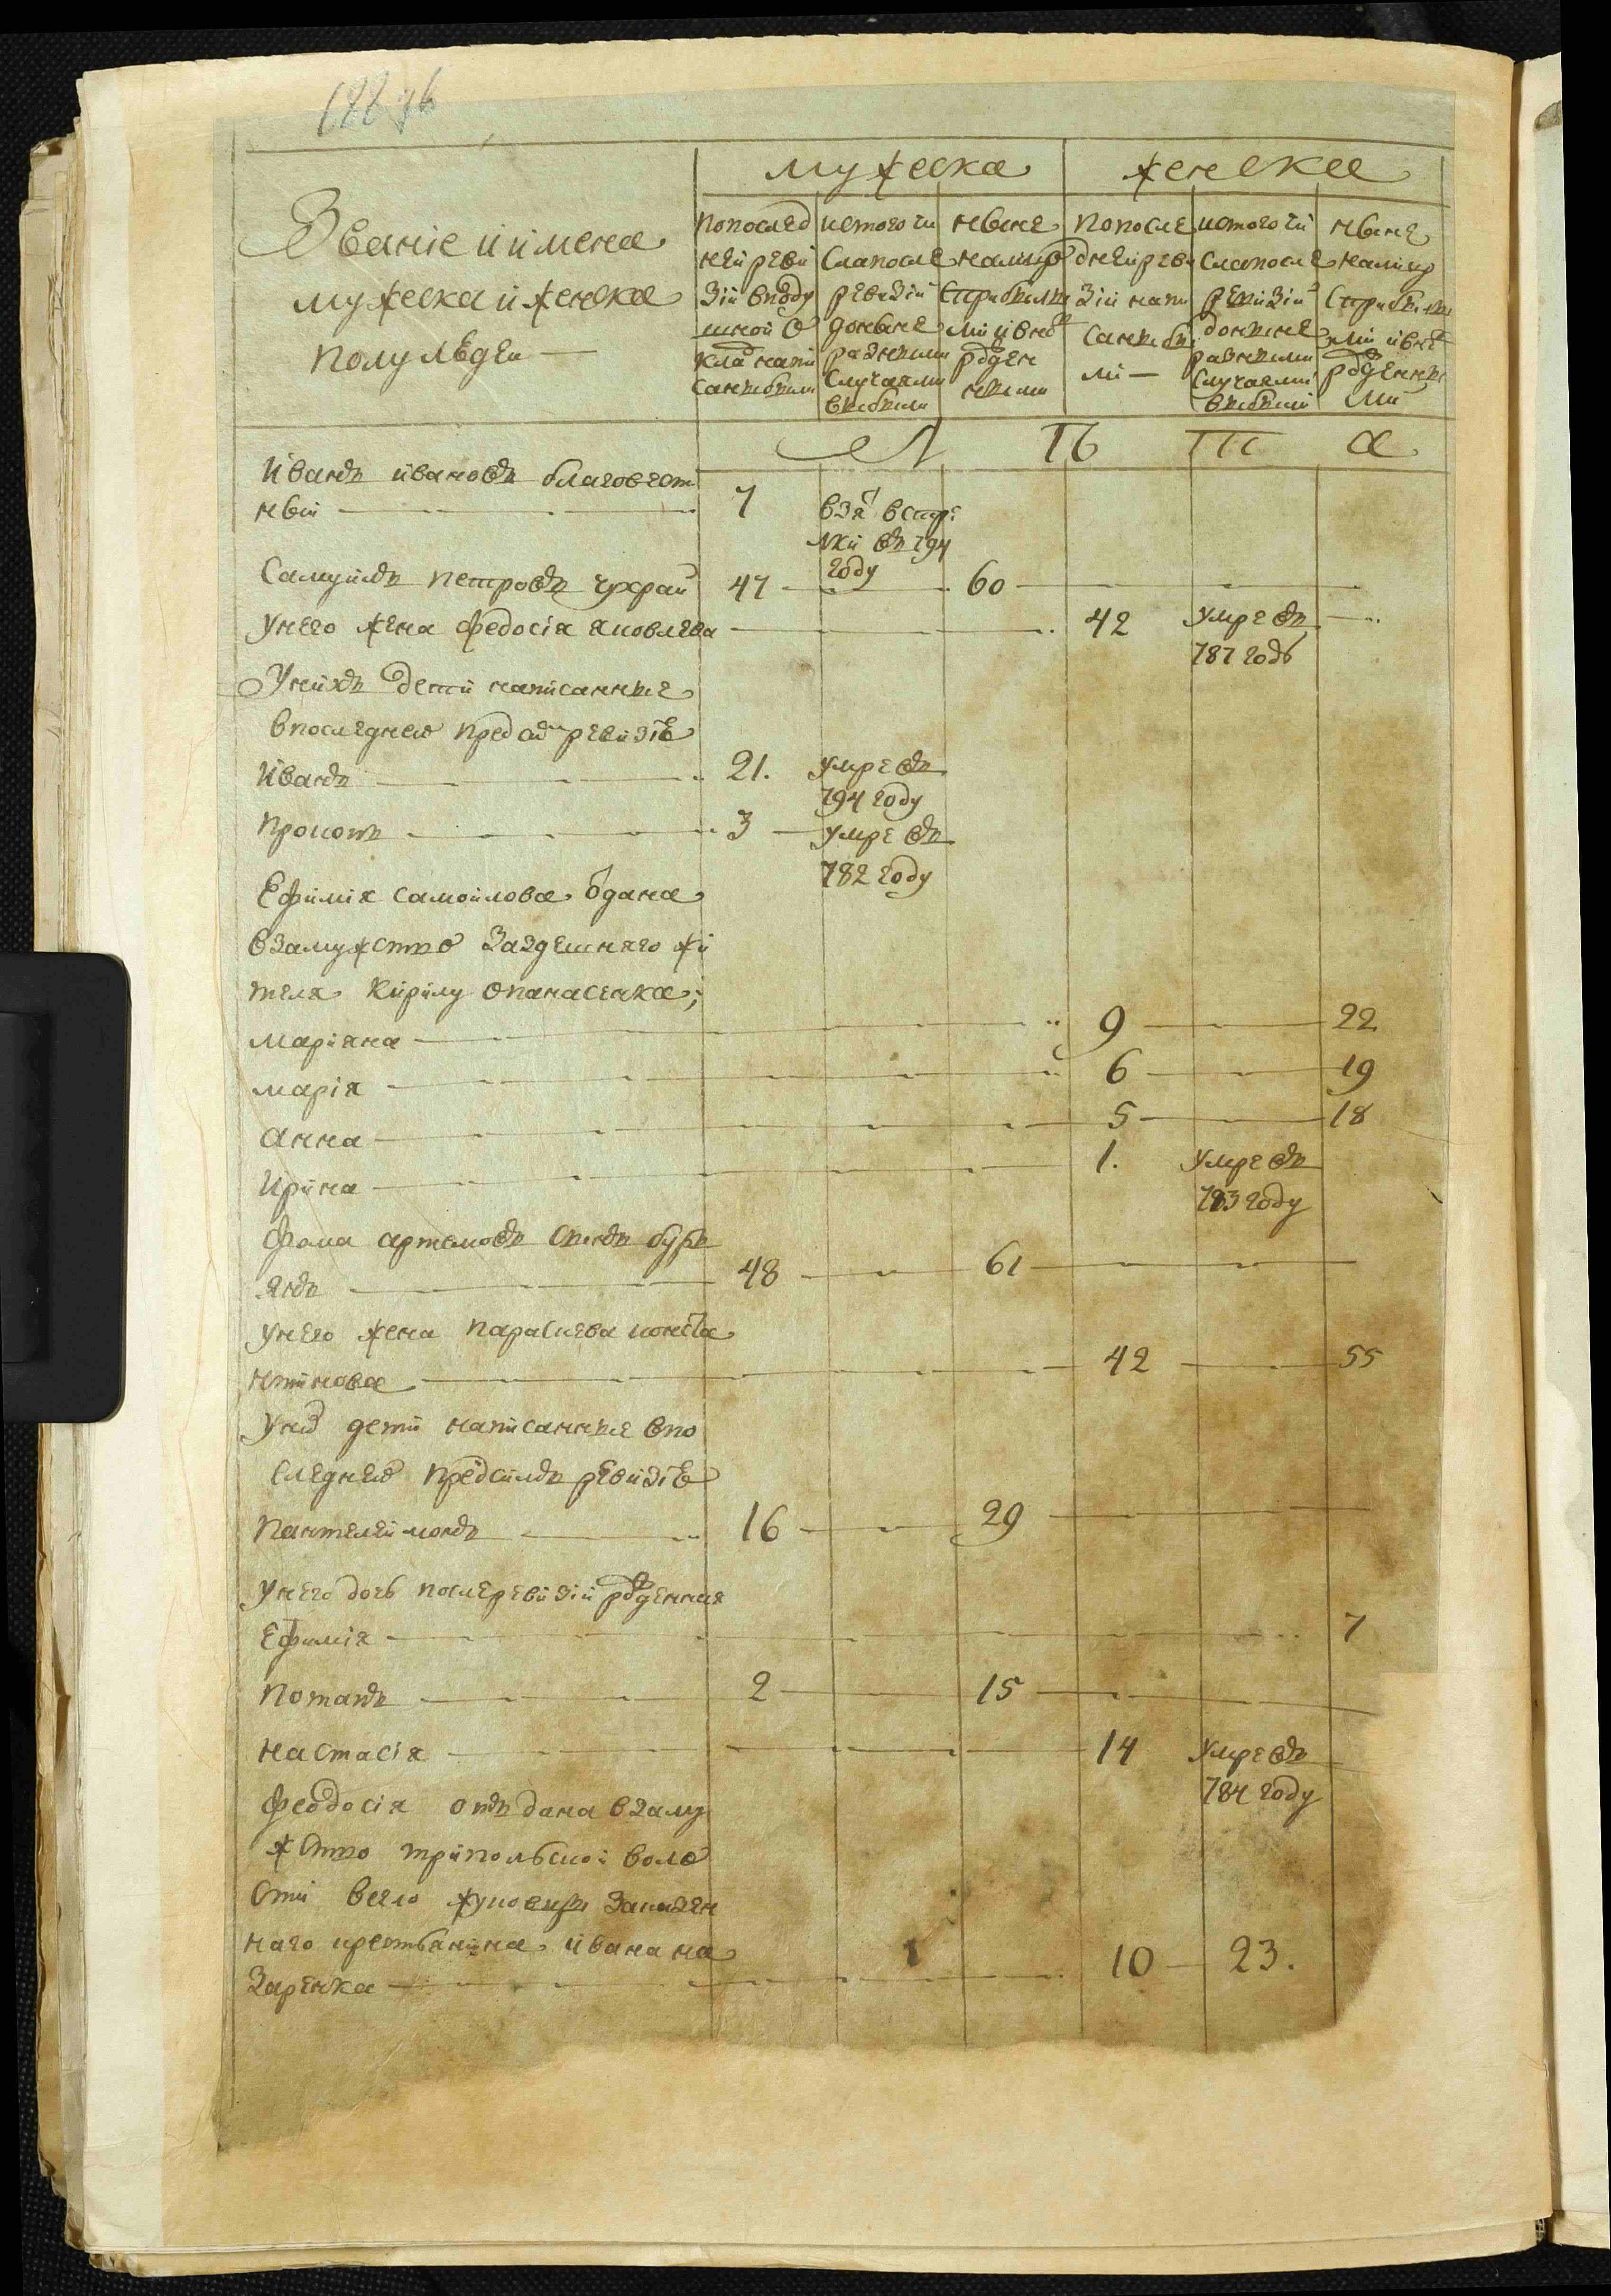 мужеска женска
Званіе и имена
мужеска и женска
полу людей —
попослед
ней реви
зіи вподу
шной о
клад напи
санныхъ
изтого чи
сла после
ревизіи
донынѣ
разными
случаями
выбыли
нынѣ
налицо
сприбылы
ми и внов
рожден
ными
попосле
дней реви
зіи напи
ми —
изтого чи
сла после
ревизіи
донынѣ
разными
случаями
выбыли
нынѣ
налицо
сприбылы
ми и внов
рожденны
ми
Л Ѣ Т А
Иванъ ивановъ благовест
ный 7 взят в стре
лки въ 794
году
Самуилъ петровъ чхрай 47 60
унего жена федосія яковлева 42 умре въ
787 годѣ
Унихъ дети написанные
впоследней пред сим ревизіѣ
Иванъ 21. умре въ
794 году
прокопъ 3 умре въ
782 году
Ефимія самойлова одана
взамужство заздешняго жи
теля кирилу опанасенка;
маріяна 9 22
марія 6 19
анна 5 18
ирина 1. умре въ
783 году
фома артемовъ сынъ бурь
янъ 48 61
унего жена параскева конста
нтинова 42 55
Уних дети написанные впо
следней предсимъ ревизіѣ
пантелеймонъ 16 29
унего дочь послеревизіи рожденная
Ефимія 7
потапъ 2 15
настасія 14 умре въ
784 году
феодосія отъдана взаму
жство трипольской воло
сти всело
наго крестьянина ивана на
заренка 10 23.